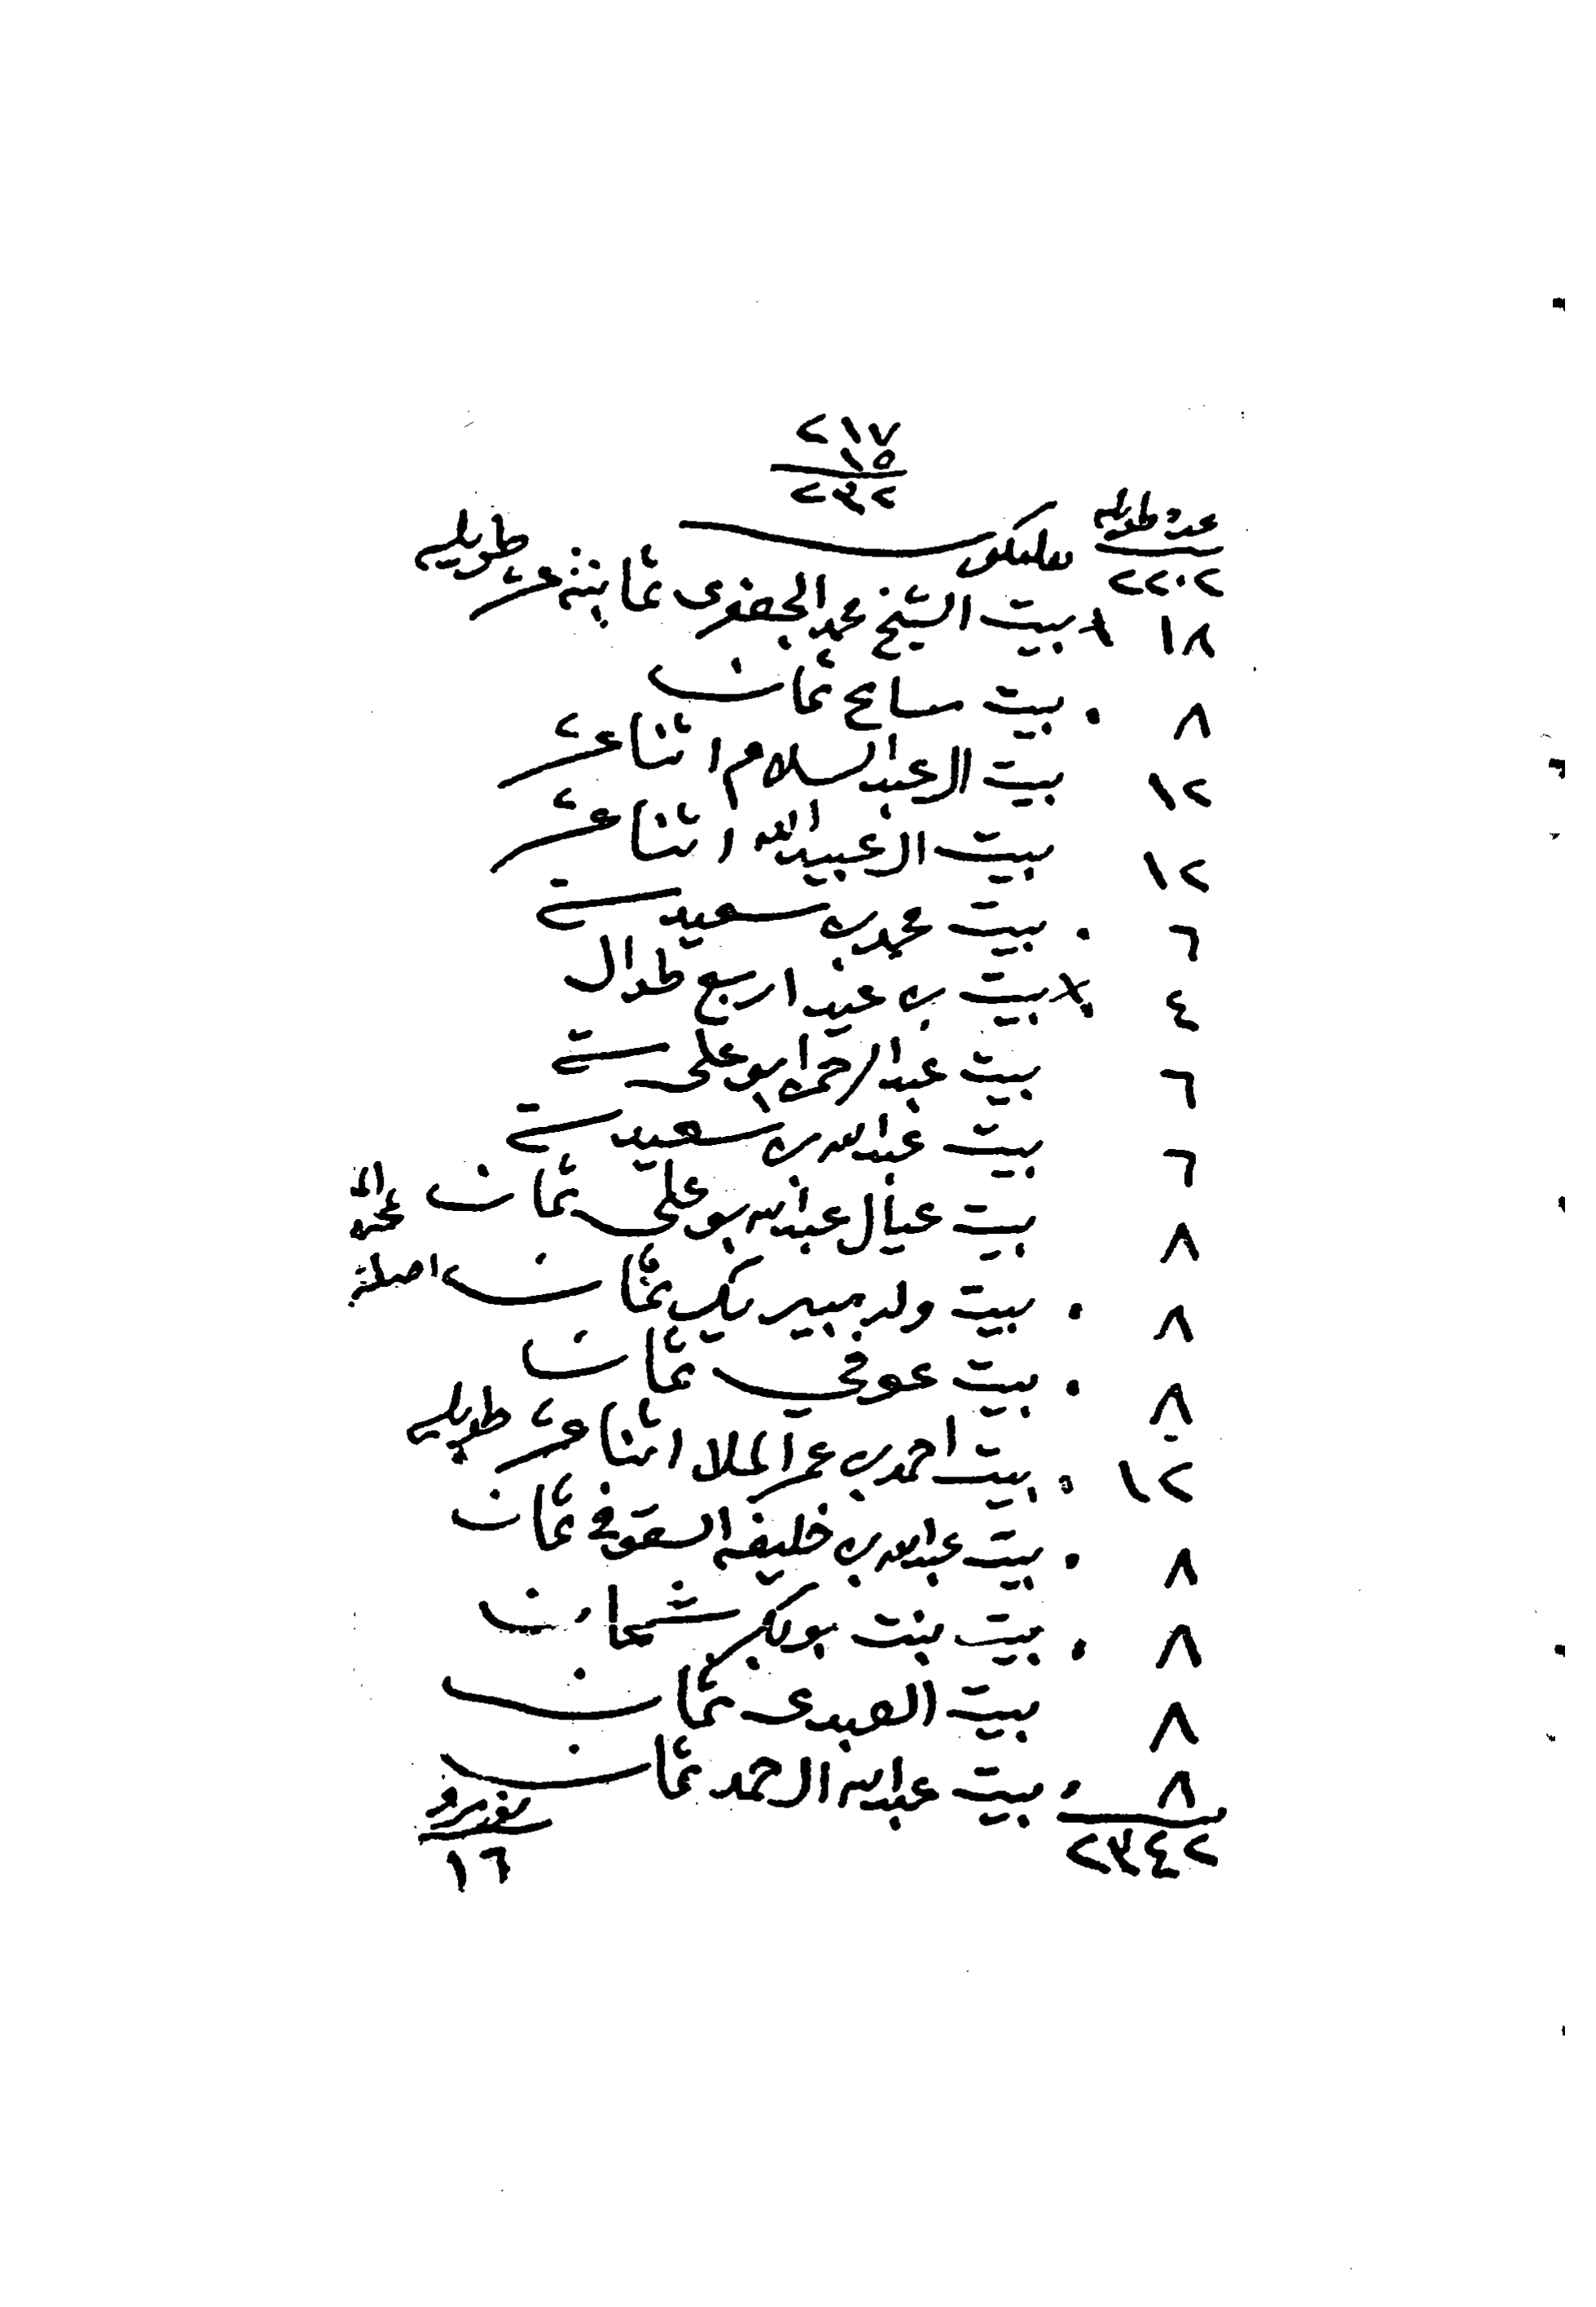 ٢١٧
١٥
٢٣٢
عدد طويله
٢٢٠٢
١٨ × بيت الشيخ محمد الجغفري ثمانيته عشر طويله
٨ . بيت ثمان
١٢ بيت ال عبد السلام اثنا عشر
١٢ بيت ال عبيد الله اثنا عشر
٦ . بيت محمد بن سعيد ستة
٤ × بيت بن عيد اربع طوال
٦ بيت عبد الرحمن ابو علي ستة
٦ بيت عبد الله بن سعيد ستة
٨ بيت عيال عبد الله بو علي ثمان
٨ . بيت ولد ثمان
٨ . بيت عوفي ثمان
١٢ . بيت احمد بن عمر الملا اثنا عشر طويله
٨ . بيت عبد الله بن خليفه السقوفي ثمان
٨ . بيت بنت بوبكر ثمان
٨ بيت العبدي ثمان
٨ . بيت عبد الله ال حمد ثمان
٢٣٤٢
١٦